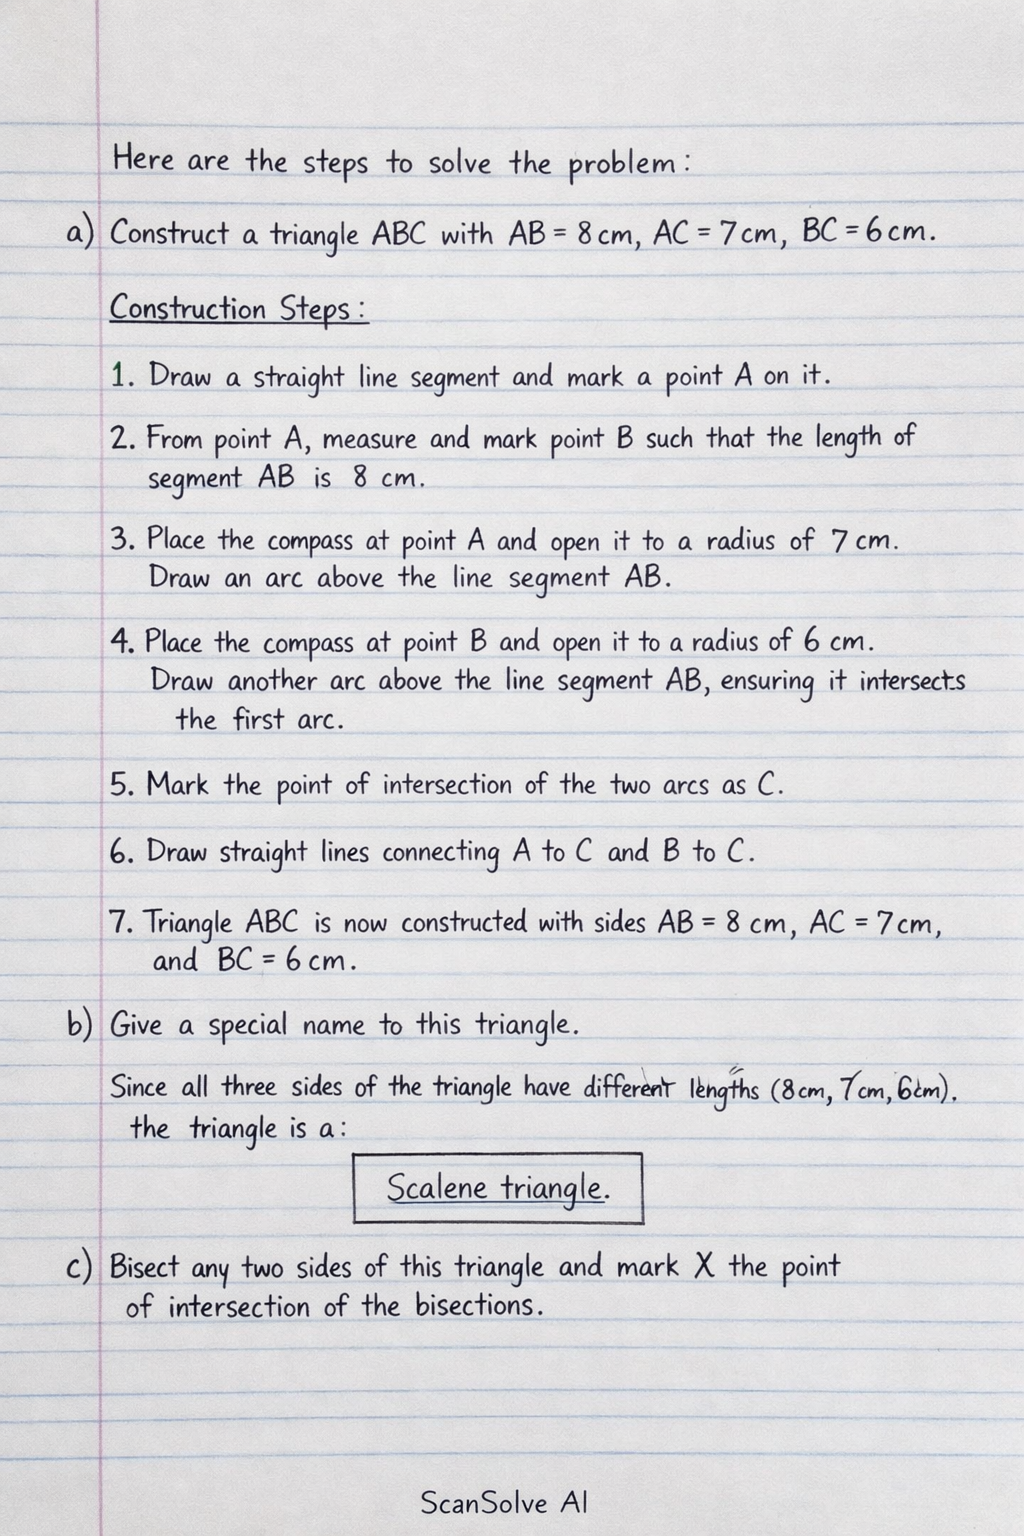 Here are the steps to solve the problem:
a) Construct a triangle ABC with AB = 8 cm, AC = 7 cm, BC = 6 cm.
Construction Steps:
1. Draw a straight line segment and mark a point A on it.
2. From point A, measure and mark point B such that the length of
segment AB is 8 cm.
3. Place the compass at point A and open it to a radius of 7 cm.
Draw an arc above the line segment AB.
4. Place the compass at point B and open it to a radius of 6 cm.
Draw another arc above the line segment AB, ensuring it intersects
the first arc.
5. Mark the point of intersection of the two arcs as C.
6. Draw straight lines connecting A to C and B to C.
7. Triangle ABC is now constructed with sides AB = 8 cm, AC = 7 cm,
and BC = 6 cm.
b) Give a special name to this triangle.
Since all three sides of the triangle have different lengths (8 cm, 7 cm, 6 cm).
the triangle is a:
Scalene triangle.
c) Bisect any two sides of this triangle and mark X the point
of intersection of the bisections.
ScanSolve AI